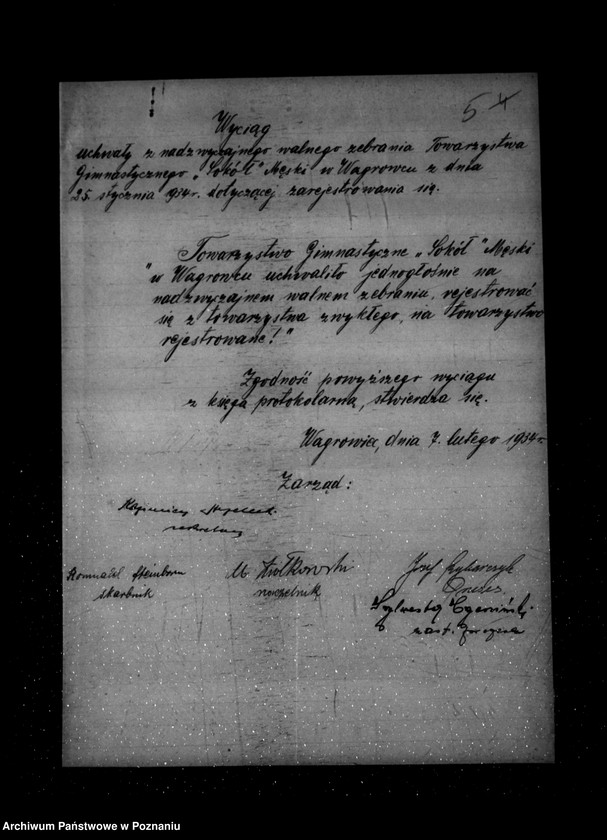 54
Wyciąg
uchwały z nadzwyczajnego walnego zebrania Towarzystwa
Gimnastycznego „Sokół" Męski w Wągrowcu z dnia
25. stycznia 1934r. dotyczącej zarejestrowania się.
Towarzystwo Gimnastyczne „Sokół" Męski
"w Wągrowcu uchwaliło jednogłośnie na
nadzwyczajnem walnem zebraniu, rejestrować
się z towarzystwa zwykłego, na towarzystwo
rejestrowane!"
Zgodność powyższego wyciągu
z księgą protokolarną, stwierdza się.
Wągrowiec, dnia 7. lutego 1934r.
Zarząd:
Kazimierz
sekretarz
Romuald Steinborn
skarbnik
M Ziółkowski
naczelnik
Józef Rybarczyk
Prezes
Sylwester Czarniński
zast. prezesa
Archiwum Państwowe w Poznaniu